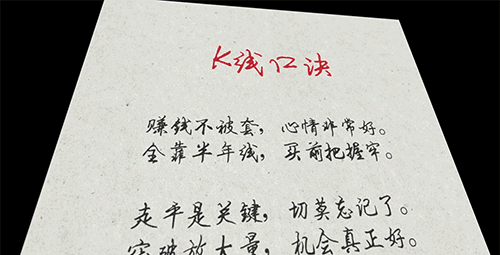 K线口诀
赚钱不被套，心情非常好。
全靠半年线，买前把握牢。
走平是关键，切莫忘记了。
突破放大量，机会真正好。